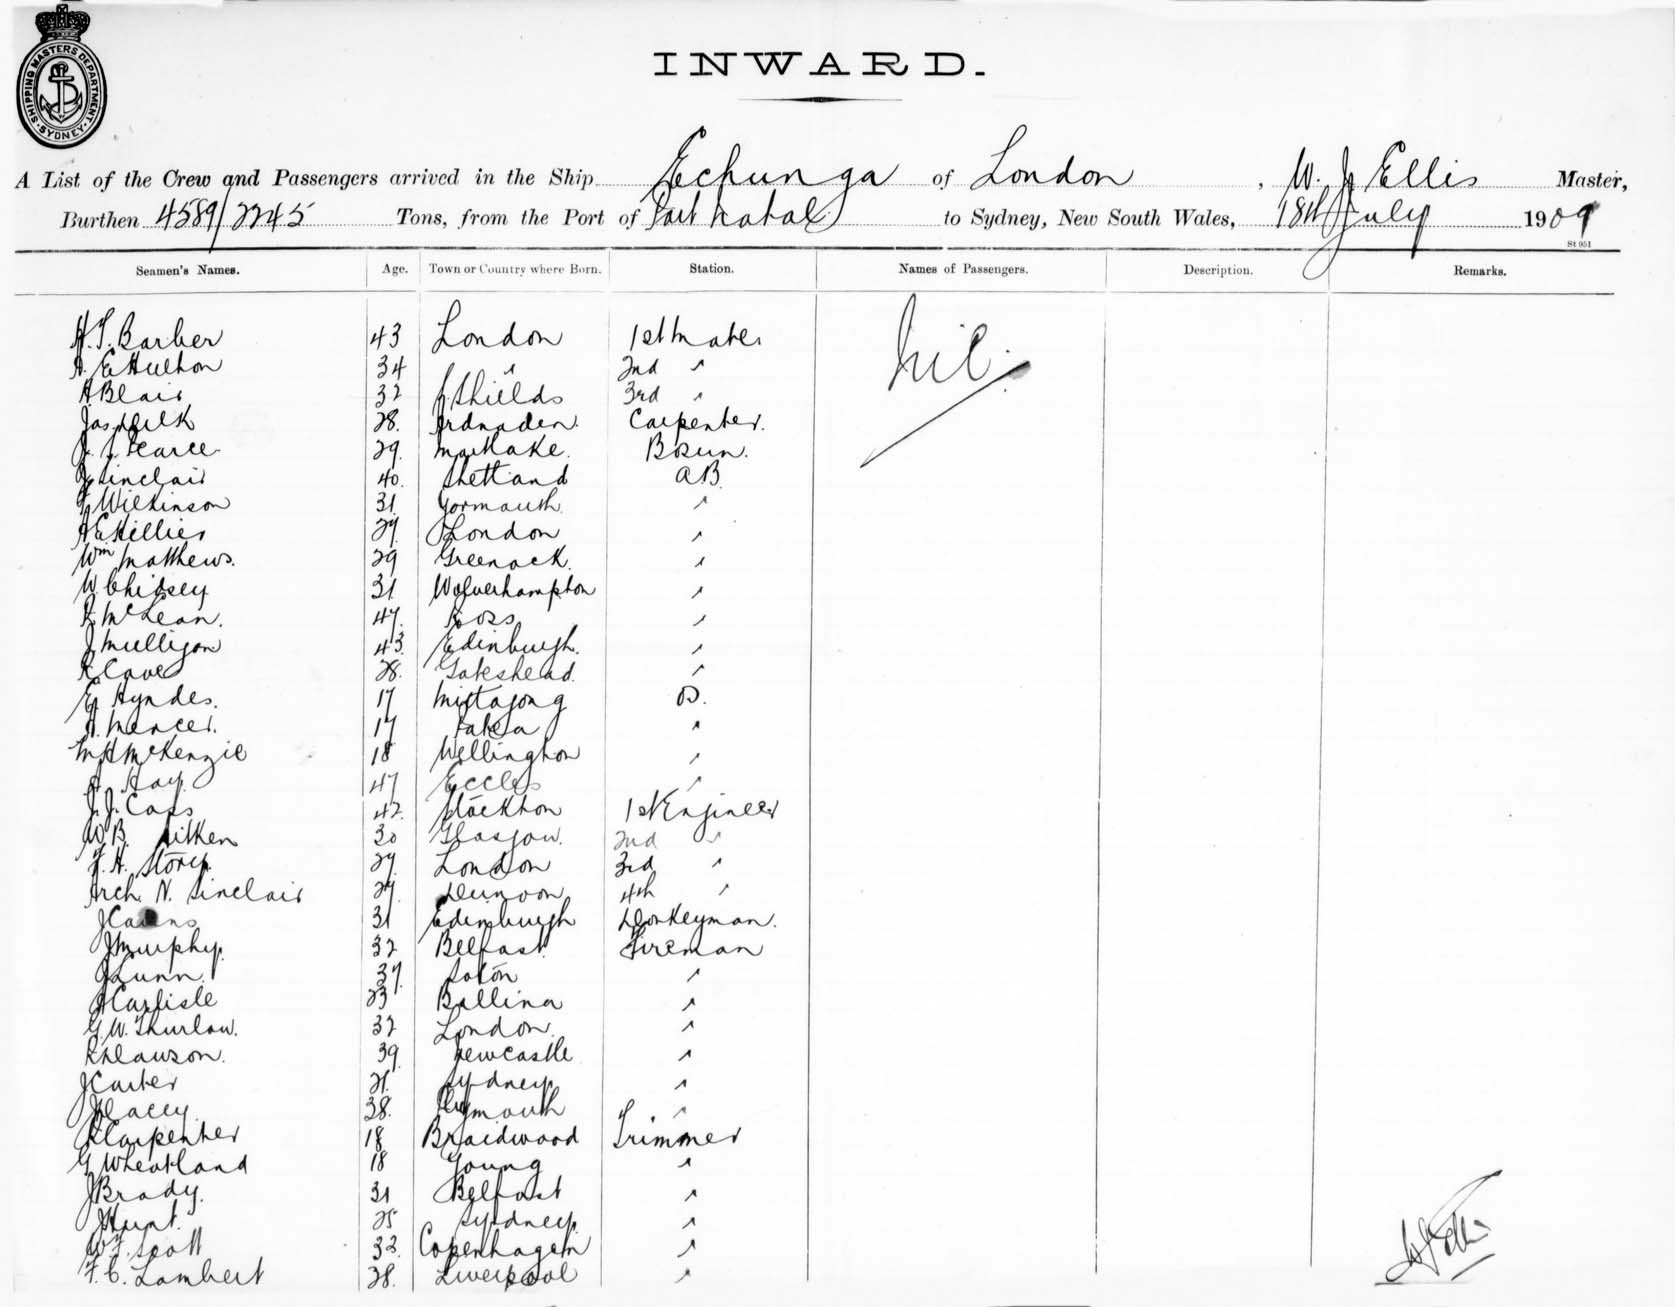 SHIPPING MASTERS DEPARTMENT. SYDNEY.
INWARD.
A List of the Crew and Passengers arrived in the Ship Echunga of London, W. J. Ellis Master,
Burthen 4589/2245 Tons, from the Port of Port Natal to Sydney, New South Wales, 18th July 1909
St 951
Seamen's Names. Age. Town or Country where Born. Station. Names of Passengers. Description. Remarks.
H. T. Barber 43 London 1st mate. nil.
A. E Hulton 34 " 2nd "
A Blair 32 S Shields 3rd "
Jas 28. Carpenter.
J. J. Pearce 29. Mortlake. Bosun.
J Sinclair 40. Shetland AB.
F Wilkinson 31 Yarmouth "
A E Hillier 27. London "
Wm Matthews. 29 Greenock. "
W. Chidsey 31 Wolverhampton "
R McLean. 47. Ross "
J Mulligan 43. Edinburgh. "
R Cave 28. Gateshead. "
E Hyndes. 17 Mittagong OS.
A. Mercer. 17 "
M H McKenzie 18 Wellington "
A Hay. 47 Eccles "
J. J. Cass 42. Stockton 1st Engineer
W B. Aitken 30 Glasgow. 2nd "
F. H. Storey. 27. London 3rd "
Arch. N. Sinclair 27. Dunoon 4th "
J Cairns 31 Edinburgh Donkeyman.
J Murphy. 32 Belfast. Fireman
J Lunn. 37. Soton "
J Carlisle 23 Ballina "
G. W. Thurlow. 32 London. "
R Dawson. 39. Newcastle "
J Carter 21. Sydney. "
J Lacey. 38. Plymouth "
R Carpenter 18 Braidwood Trimmer
G Wheatland 18 Young "
J Brady. 31 Belfast "
J Hunt. 25 Sydney. "
W. F. Scott 33. Copenhagen "
F. C. Lambert 28. Liverpool "
W J Ellis